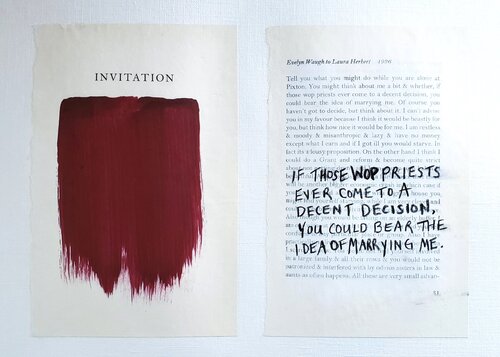 INVITATION
Evelyn Waugh to Laura Herbert 1936
Tell you what you might do while you are alone at
Pixton. You might think about me a bit & whether, if
those wop priests ever come to a decent decision, you
could bear the idea of marrying me. Of course you
haven't got to decide, but think about it. I can't advise
you in my favour because I think it would be beastly for
you, but think how nice it would be for me. I am restless
& moody & misanthropic & lazy & have no money
except what I earn and if I got ill you would starve. In
fact its a lousy proposition. On the other hand I think I
could do a Grant and reform & become quite strict
IF THOSE WOP PRIESTS
EVER COME TO A
DECENT DECISION,
YOU COULD BEAR THE
IDEA OF MARRYING ME.
in a large family & all their rows & you would not be
patronized & interfered with by odious sisters in law &
aunts as often happens. All these are very small advan-
51